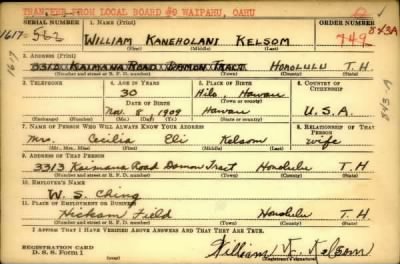 TRANSFER FROM LOCAL BOARD #9 WAIPAHU, OAHU
SERIAL NUMBER 1. NAME (Print) ORDER NUMBER
1617 562 WILLIAM KANEHOLANI KELSOM 749 843A
(First) (Middle) (Last)
2. ADDRESS (Print)
3313 KAIMANA ROAD DAMON TRACT HONOLULU T.H
(Number and street or R. F. D. number) (Town) (County) (State)
3. TELEPHONE 4. AGE IN YEARS 5. PLACE OF BIRTH 6. COUNTRY OF CITIZENSHIP
30 Hilo, Hawaii
DATE OF BIRTH (Town or county)
Nov. 8 1909 Hawaii U.S.A.
(Exchange) (Number) (Mo.) (Day) (Yr.) (State or country)
7. NAME OF PERSON WHO WILL ALWAYS KNOW YOUR ADDRESS 8. RELATIONSHIP OF THAT PERSON
Mrs. Cecilia Eli Kelsom wife
(Mr., Mrs., Miss) (First) (Middle) (Last)
9. ADDRESS OF THAT PERSON
3313 Kaimana Road Damon Tract Honolulu T.H
(Number and street or R. F. D. number) (Town) (County) (State)
10. EMPLOYER'S NAME
W. S. Ching
11. PLACE OF EMPLOYMENT OR BUSINESS
Hickam Field Honolulu T.H
(Number and street or R. F. D. number) (Town) (County) (State)
I AFFIRM THAT I HAVE VERIFIED ABOVE ANSWERS AND THAT THEY ARE TRUE.
REGISTRATION CARD
D. S. S. Form 1 William K. Kelsom
(Registrant's signature)